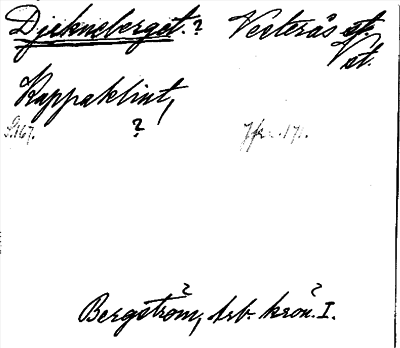 Djekneberget.? Vesterås st.
Vst.
Kappaklint,
S.167. ?
Bergström, arb. krön. I.
? ?